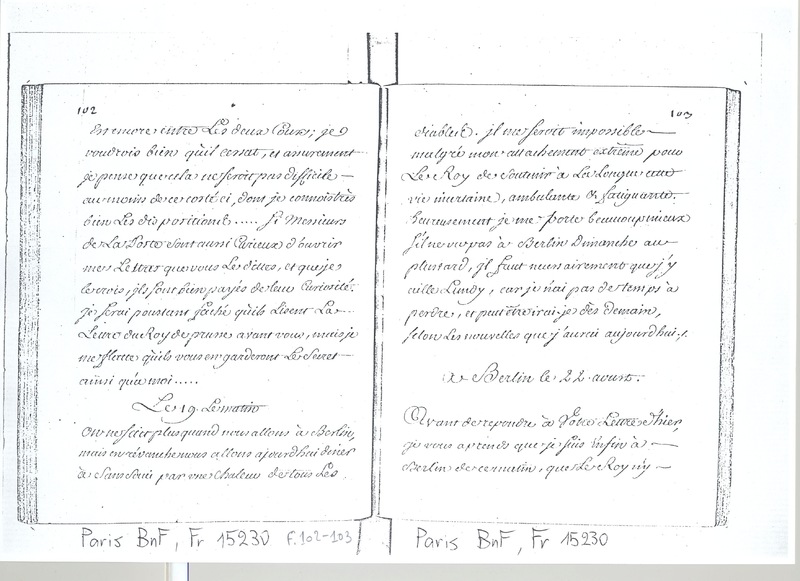 102
En cmore entre Les deux Cours; je
voudrois bien qu'il cessat, et assurement
je pense que cela ne seroit pas difficile
au moins de ce costé ci, dont je connois très
bien Les dispositions ..... Si Messieurs
de La Poste sont aussi Curieux d'ouvrir
mes Lettres que vous Le dittes, et que je
le crois, ils sont bien payés de leur Curiosité.
je serai pourtant faché qu'ils Lisent La
Lettre du Roy de prusse avant vous, mais je
me flatte qu'ils vous en garderont Le Secret
ainsi qu'a moi .....
Le 19. Le matin
On ne sait plus quand nous allons à Berlin,
mais en révanche nous allons ajourdhui diner
à Sans Souci par une Chaleur de tous Les
103
diables. jl me seroit impossible
malgré mon attachement extrême pour
Le Roy de Soutenir à La Longue cette
vie , ambulante & fatiguante.
heureusement je me porte beaucoup mieux
s'il ne va pas à Berlin Dimanche au
plus tard, jl faut necessairement que j'y
aille Lundy, car je n'ai pas de temps à
perdre, et peut être irai-je dès demain,
selon Les nouvelles que j'aurai aujourdhui.
à Berlin le 22 aoust.
Avant de repondre à Votre Lettre d'hier,
je vous aprends que je suis enfin à
Berlin de ce matin, que Le Roy n'y
Paris BnF, Fr 15230 F. 102-103
Paris BnF, Fr 15230